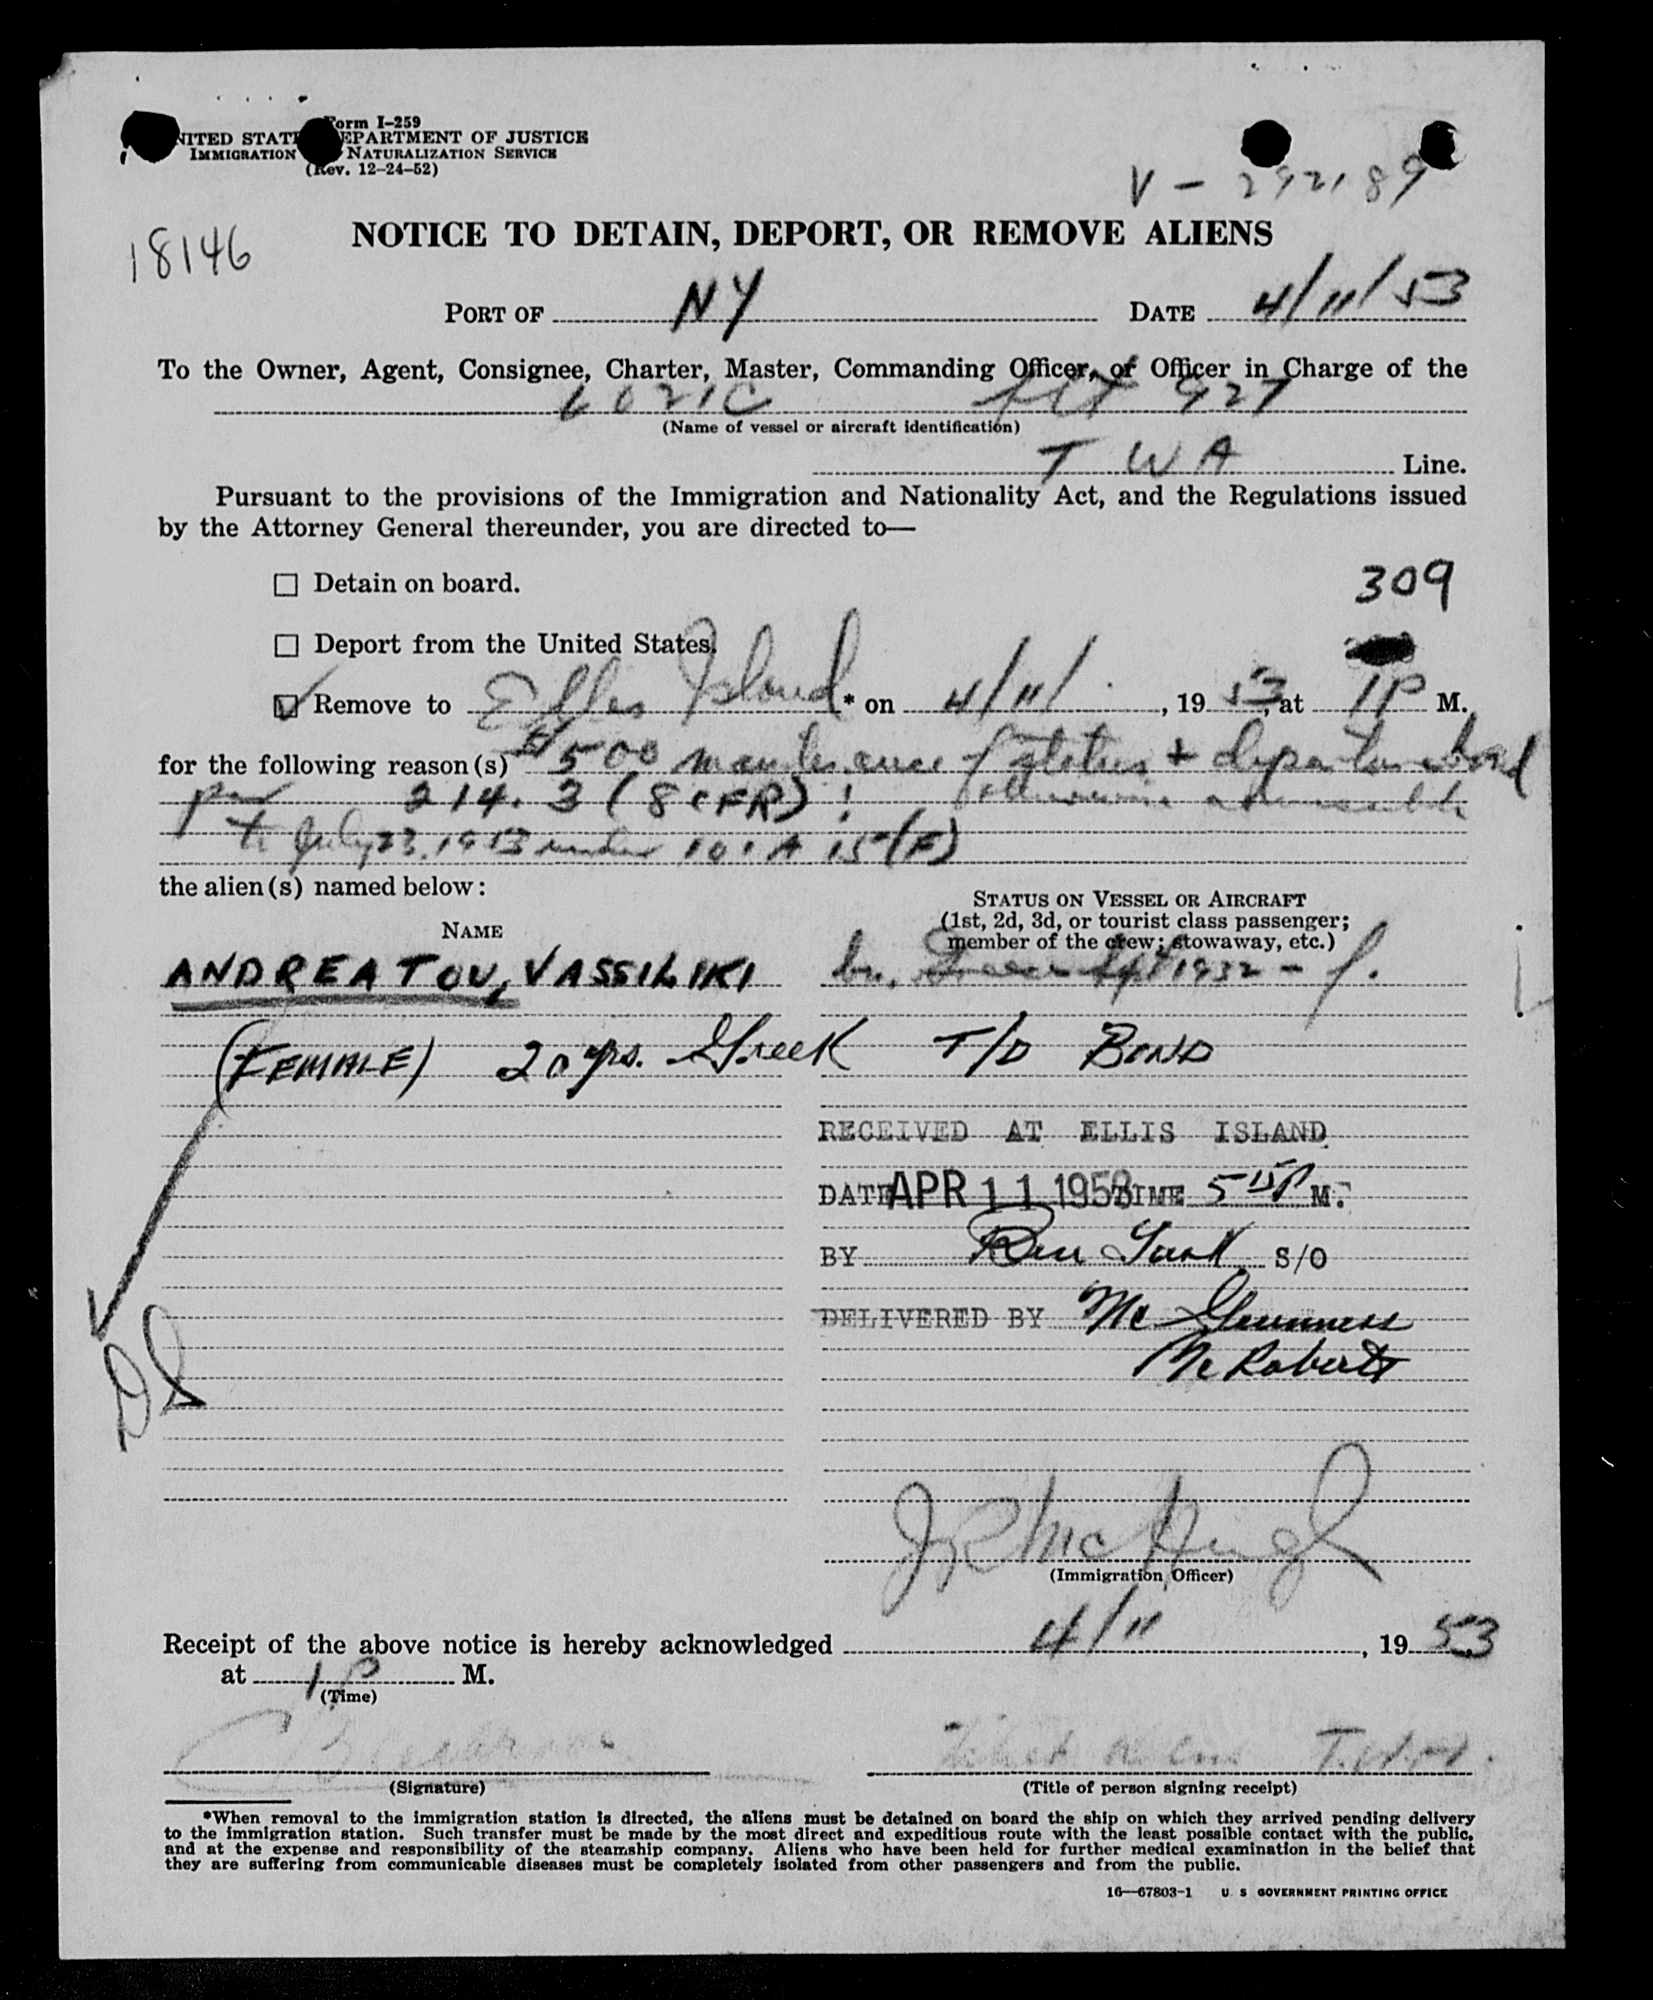 Form I-259
UNITED STATES DEPARTMENT OF JUSTICE
IMMIGRATION NATURALIZATION SERVICE
(Rev. 12-24-52)
V - 292189
18146
NOTICE TO DETAIN, DEPORT, OR REMOVE ALIENS
PORT OF NY DATE 4/11/53
To the Owner, Agent, Consignee, Charter, Master, Commanding Officer, or Officer in Charge of the
6021C flt 927
(Name of vessel or aircraft identification)
T W A Line.
Pursuant to the provisions of the Immigration and Nationality Act, and the Regulations issued
by the Attorney General thereunder, you are directed to—
☐ Detain on board.
309
☐ Deport from the United States.
☑ Remove to Ellis Island * on 4/11/, 19 53, at 1P M.
for the following reason(s) $500 maintenance of status + departure bond
per 214.3 (8 CFR) ; otherwise admissible
to July 23, 1953 under 101 A 15 (F)
the alien(s) named below:
STATUS ON VESSEL OR AIRCRAFT
(1st, 2d, 3d, or tourist class passenger;
member of the crew; stowaway, etc.)
NAME
ANDREATOU, VASSILIKI bn. Greece Sept 1932 - f.
(FEMALE) 20 yrs. Greek T/D BOND
RECEIVED AT ELLIS ISLAND
DATE APR 11 1953 TIME 5 15 P M.
BY Ben S/O
DELIVERED BY Mc Guinness
McRoberts
DS
J R McHugh
(Immigration Officer)
Receipt of the above notice is hereby acknowledged 4/11, 19 53
at 1 P M.
(Time)
T.W.A.
(Signature) (Title of person signing receipt)
*When removal to the immigration station is directed, the aliens must be detained on board the ship on which they arrived pending delivery
to the immigration station. Such transfer must be made by the most direct and expeditious route with the least possible contact with the public,
and at the expense and responsibility of the steamship company. Aliens who have been held for further medical examination in the belief that
they are suffering from communicable diseases must be completely isolated from other passengers and from the public.
16—67803-1 U. S GOVERNMENT PRINTING OFFICE